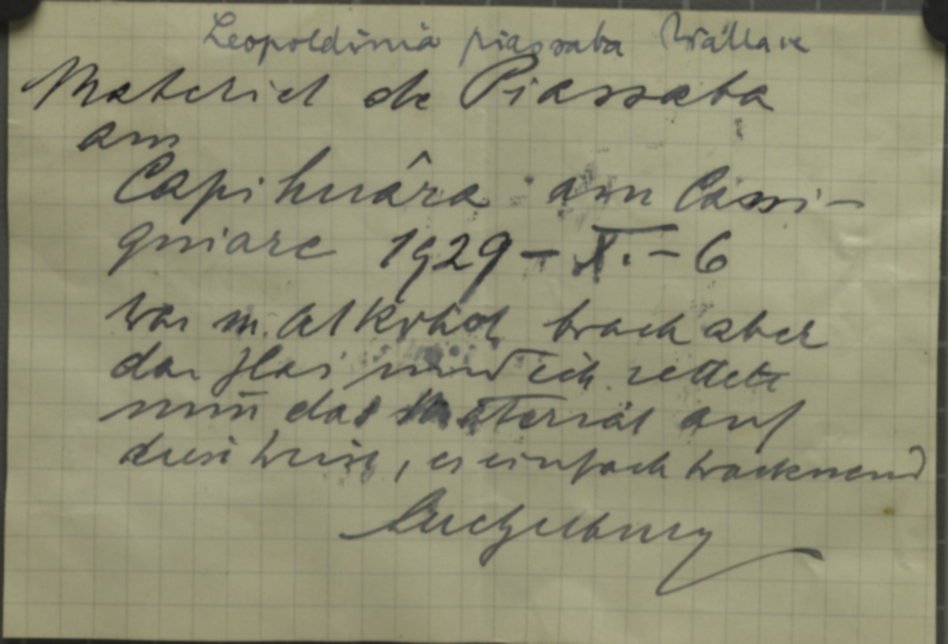 Leopoldinia piassaba Wallace
Material de Piassaba
am
Capihuâra am Cassi-
quiare 1929 - X. - 6
war in Alkohol, brach aber
das Glas und ich rettete
nun das Material auf
diese Weise, es einfach trocknend
Luetzelburg